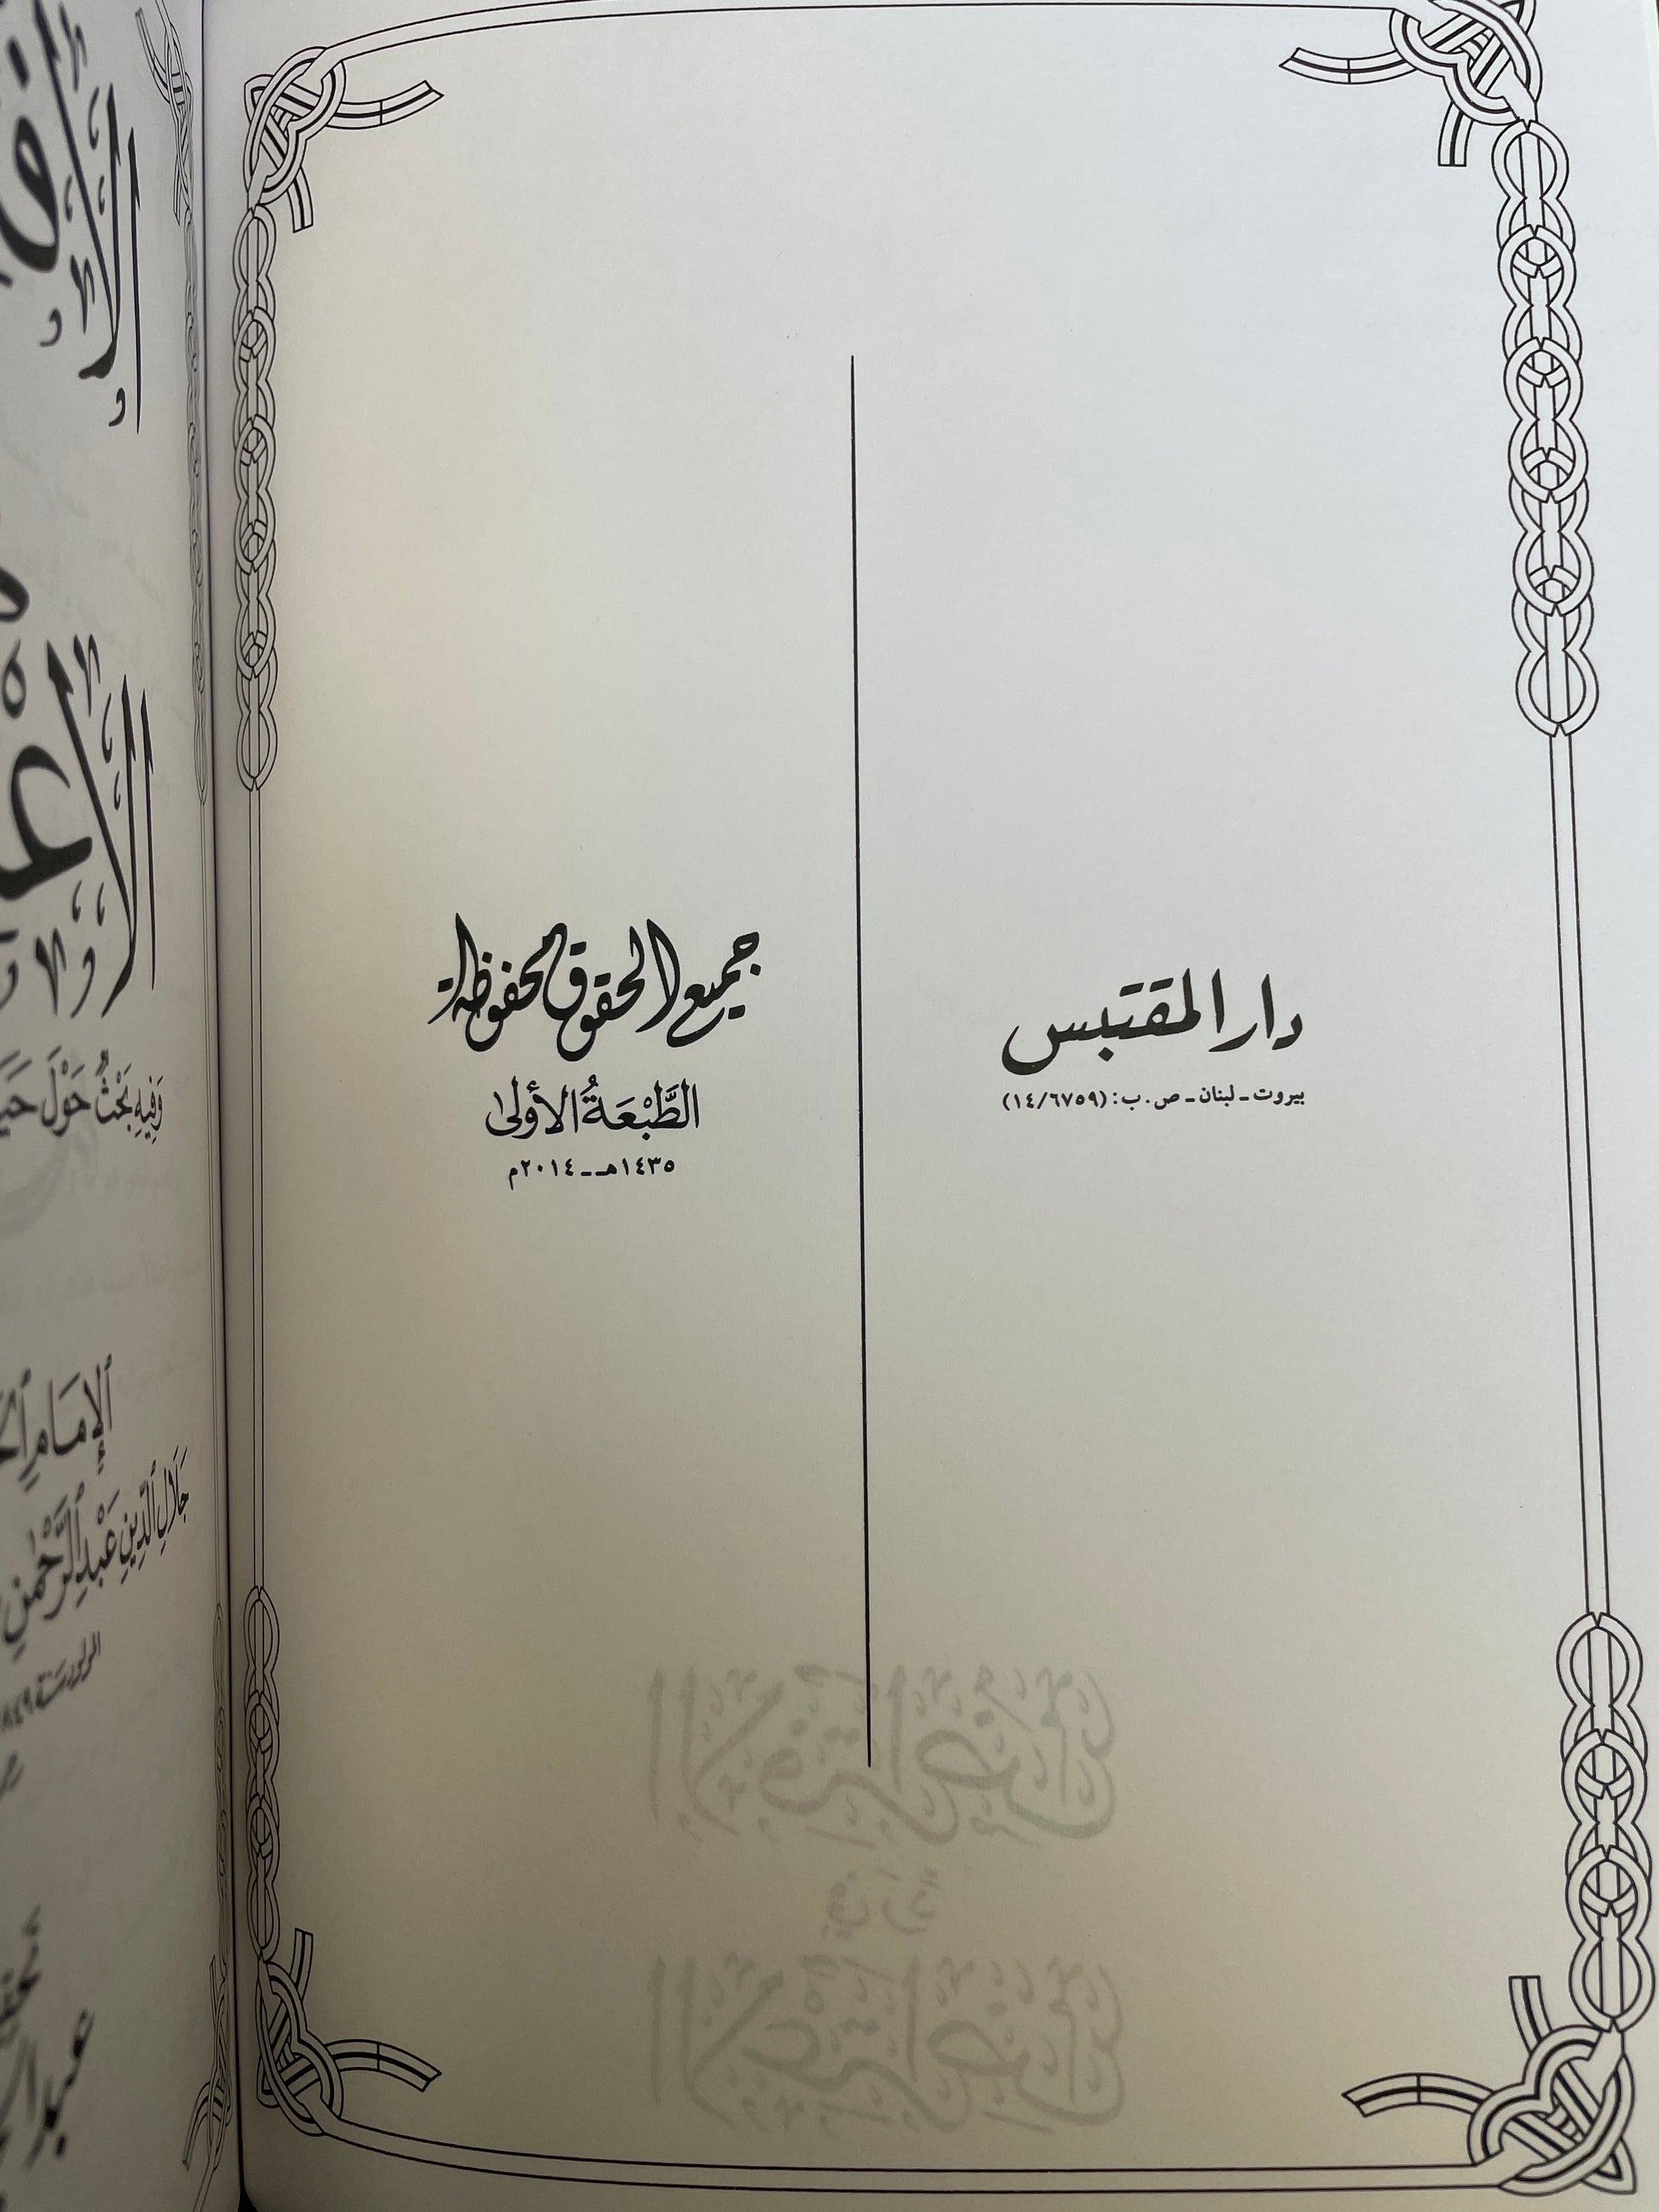 دار المقتبس
بيروت - لبنان - ص.ب: (١٤/٦٧٥٩)
جميع الحقوق محفوظة
الطَّبْعَةُ الأولى
١٤٣٥هـ - ٢٠١٤م
وَفِيهِ بَحْثٌ حَوْلَ
الإِمَامِ
جَلَالِ الدِّينِ عَبْدِ الرَّحْمٰنِ
المولود سنة ٨٤٩